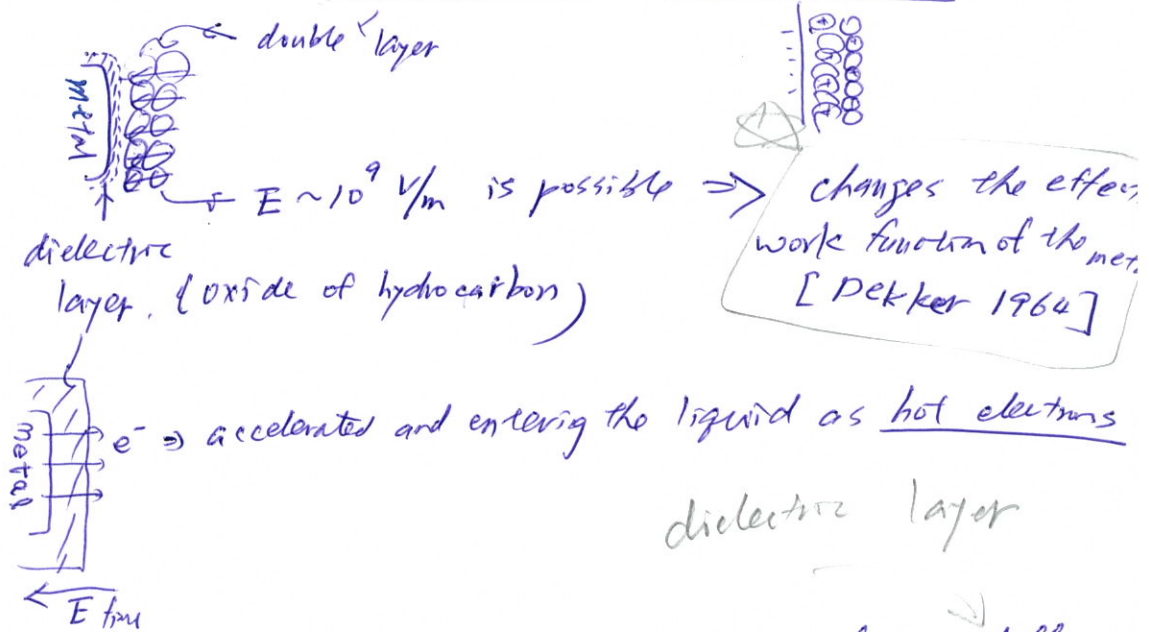 double layer
metal
E ~10⁹ V/m is possible ⇒
changes the effec
work function of the met.
[Dekker 1964]
dielectric
layer. (oxide of hydrocarbon)
metal
e⁻ ⇒ accelerated and enterig the liquid as hot electrons
dielectric layer
← E